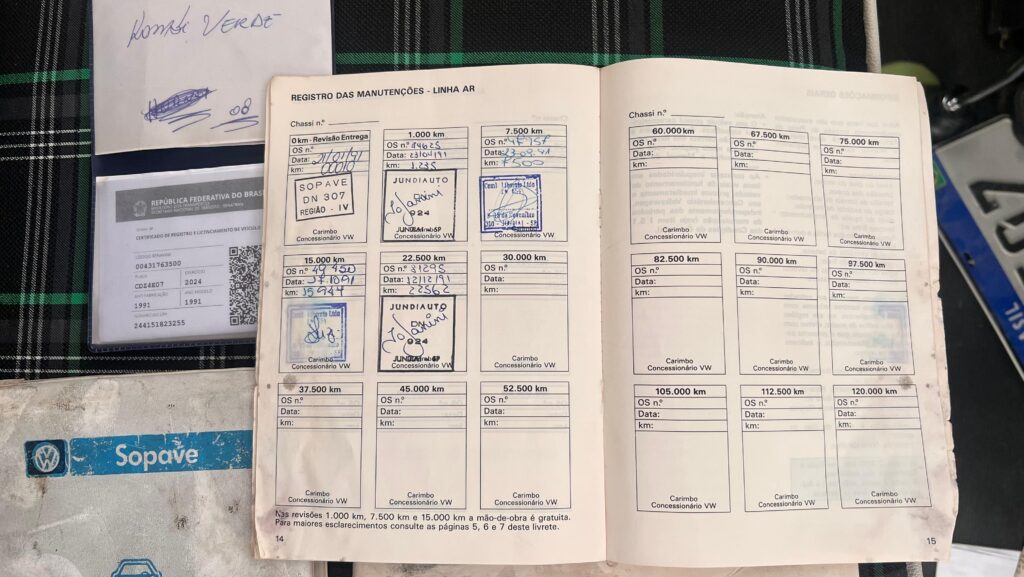 KOMBI VERDE
08
REPÚBLICA FEDERATIVA DO BRASIL
CERTIFICADO DE REGISTRO E LICENCIAMENTO DE VEÍCULO
CÓDIGO RENAVAM
00431763500
PLACA EXERCÍCIO
CDZ4E07 2024
ANO FABRICAÇÃO ANO MODELO
1991 1991
NÚMERO DO CRV
244151823255
Sopave
REGISTRO DAS MANUTENÇÕES - LINHA AR
Chassi n.º
0 km - Revisão Entrega
OS n.º
Data: 21/01/91
km: 00010
SOPAVE
DN 307
REGIÃO - IV
Carimbo
Concessionário VW
1.000 km
OS n.º 14625
Data: 23/04/91
km: 1.235
JUNDIAUTO
924
Carimbo
Concessionário VW
7.500 km
OS n.º
Data: 23.08.91
km: 7500
Carimbo
Concessionário VW
15.000 km
OS n.º 49450
Data:
km: 15944
Carimbo
Concessionário VW
22.500 km
OS n.º 31295
Data: 12/12/91
km: 22562
JUNDIAUTO
DN
924
Carimbo
Concessionário VW
30.000 km
OS n.º
Data:
km:
Carimbo
Concessionário VW
37.500 km
OS n.º
Data:
km:
Carimbo
Concessionário VW
45.000 km
OS n.º
Data:
km:
Carimbo
Concessionário VW
52.500 km
OS n.º
Data:
km:
Carimbo
Concessionário VW
Nas revisões 1.000 km, 7.500 km e 15.000 km a mão-de-obra é gratuita.
Para maiores esclarecimentos consulte as páginas 5, 6 e 7 deste livrete.
14
Chassi n.º
60.000 km
OS n.º
Data:
km:
Carimbo
Concessionário VW
67.500 km
OS n.º
Data:
km:
Carimbo
Concessionário VW
75.000 km
OS n.º
Data:
km:
Carimbo
Concessionário VW
82.500 km
OS n.º
Data:
km:
Carimbo
Concessionário VW
90.000 km
OS n.º
Data:
km:
Carimbo
Concessionário VW
97.500 km
OS n.º
Data:
km:
Carimbo
Concessionário VW
105.000 km
OS n.º
Data:
km:
Carimbo
Concessionário VW
112.500 km
OS n.º
Data:
km:
Carimbo
Concessionário VW
120.000 km
OS n.º
Data:
km:
Carimbo
Concessionário VW
15